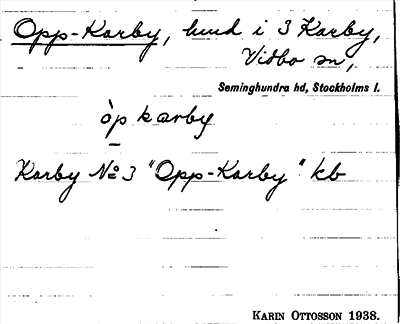 Opp-Karby, hmd i 3 Karby,
Vidbo sn,
Seminghundra hd, Stockholms l.
òp karby
Karby No 3 "Opp-Karby" kb
KARIN OTTOSSON 1938.